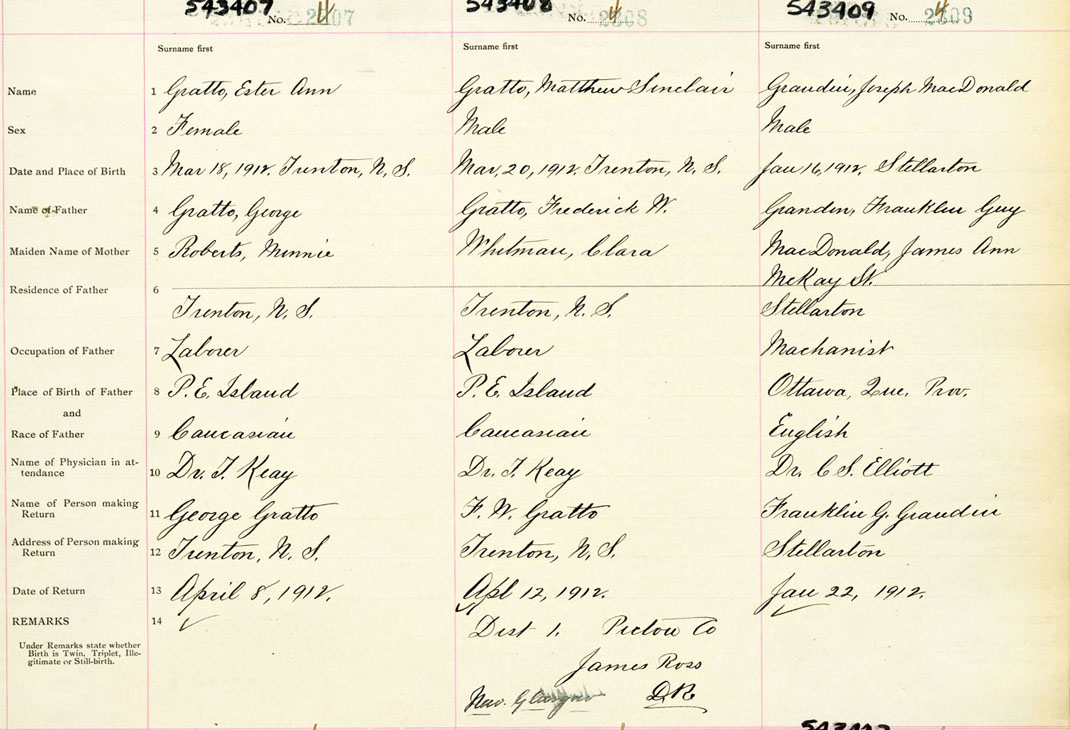 543407 543408 543409
No. 4 2307 No. 4 2308 No. 4 2309
Surname first Surname first Surname first
Name 1 Gratto, Ester Ann Gratto, Matthew Sinclair Graudin, Joseph MacDonald
Sex 2 Female Male Male
Date and Place of Birth 3 Mar 18, 1912. Trenton, N. S. Mar. 20, 1912. Trenton, N. S. Jan 16, 1912. Stellarton
Name of Father 4 Gratto, George Gratto, Frederick W. Grandin, Franklin Guy
Maiden Name of Mother 5 Roberts, Minnie Whitman, Clara MacDonald, James Ann
McKay St.
Residence of Father 6
Trenton, N. S. Trenton, N. S. Stellarton
Occupation of Father 7 Laborer Laborer Machanist
Place of Birth of Father 8 P. E. Island P. E. Island Ottawa, Que. Prov.
and
Race of Father 9 Caucasian Caucasian English
Name of Physician in at-
tendance 10 Dr. J. Keay Dr. J. Keay Dr. C S. Elliott
Name of Person making
Return 11 George Gratto F. W. Gratto Franklin G. Graudin
Address of Person making
Return 12 Trenton, N. S. Trenton, N. S. Stellarton
Date of Return 13 April 8, 1912. Apl 12, 1912. Jan 22, 1912.
REMARKS 14 Dist 1. Pictou Co
Under Remarks state whether
Birth is Twin, Triplet, Ille-
gitimate or Still-birth.
James Ross
New Glasgow D.R.